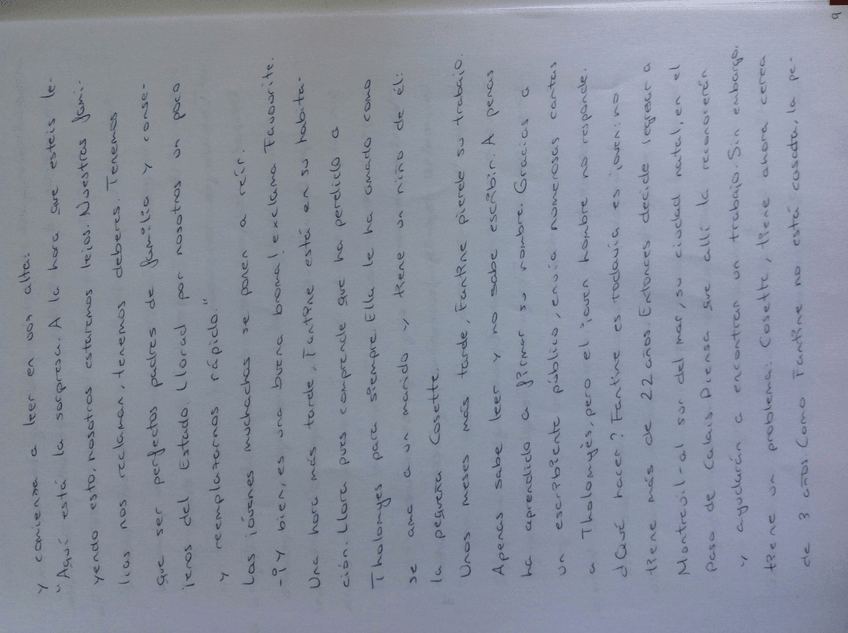 y comienza a leer en voz alta:
"Aquí está la sorpresa. A la hora que esteis le-
yendo esto, nosotros estaremos lejos. Nuestras fami-
lias nos reclaman, tenemos deberes. Tenemos
que ser perfectos padres de familia y conse-
jeros del Estado. Llorad por nosotros un poco
y reemplazarnos rápido."
Las jóvenes muchachas se ponen a reír.
-¡Y bien, es una buena broma! exclama Favourite.
Una hora más tarde, Fantine está en su habita-
ción. Llora pues comprende que ha perdido a
Tholomyes para siempre. Ella le ha amado como
se ama a un marido y tiene un niño de él:
la pequeña Cosette.
Unos meses más tarde, Fantine pierde su trabajo.
Apenas sabe leer y no sabe escribir. A penas
ha aprendido a firmar su nombre. Gracias a
un escribiente público, envía numerosas cartas
a Tholomyès, pero el joven hombre no responde.
¿Qué hacer? Fantine es todavía es joven: no
tiene más de 22 años. Entonces decide regresar a
Montreuil-al sur del mar, su ciudad natal, en el
Paso de Calais. Piensa que allí la reconocerán
y ayudarán a encontrar un trabajo. Sin embargo,
tiene un problema. Cosette, tiene ahora cerca
de 3 años. Como Fantine no está casada, la pe-
9